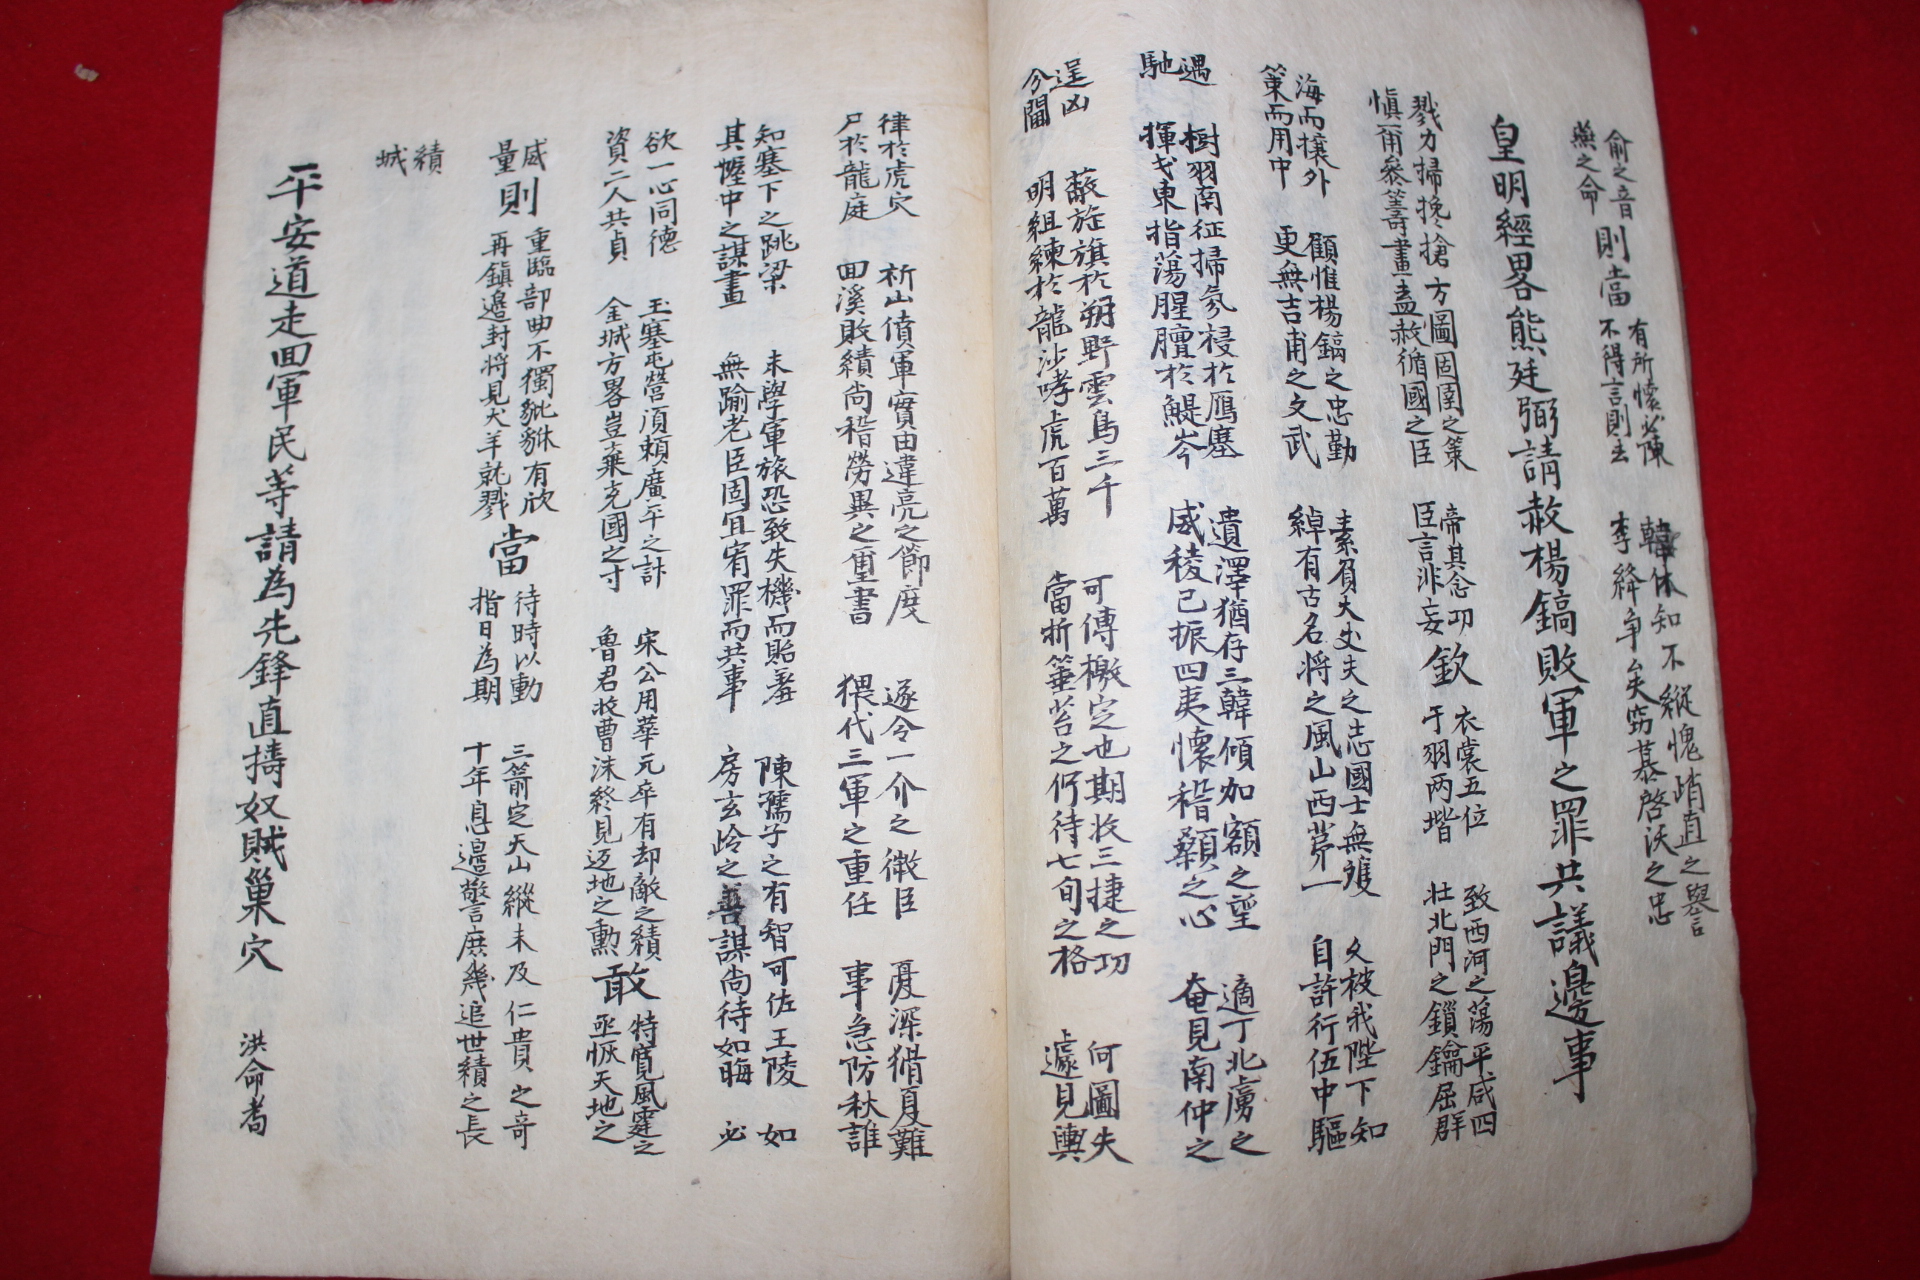 俞之音
無之命
則當
有所懷必陳
不得言則去
韓休知不縱愧峭直之譽
李絳爭矣窃慕啓沃之忠
皇明經畧熊廷弼請赦楊鎬敗軍之罪共議邊事
戮力掃攙搶方圖固圉之策
愼爾參籌畫盍赦循國之臣
帝其念功
臣言非妄
欽
衣裳五位
于羽兩堦
致西河之蕩平咸四
壯北門之鎖鑰屈群
海而攘外
策而用中
顧惟楊鎬之忠勤
更無吉甫之文武
素負大丈夫之志國士無雙
綽有古名将之風山西第一
久被我陛下知
自許行伍中驅
遇
馳
樹羽南征掃氛祲於鴈塞
揮戈東指蕩腥膻於鯷岑
遺澤猶存三韓傾加額之望
威稜已振四夷懷稽顙之心
適丁北虜之
奄見南仲之
逞凶
分閫
蔽旌旗於朔野雲鳥三千
明組練於龍沙哮虎百萬
可傳檄定也期收三捷之功
當折箠笞之何待七旬之格
何圖失
遽見輿
律於虎穴
尸於龍庭
祈山僨軍實由違亮之節度
回溪敗績尚稽勞異之璽書
遂令一介之微臣
猥代三軍之重任
憂深猾夏難
事急防秋誰
知塞下之跳梁
其幄中之謀畫
未學軍旅恐致失機而貽羞
無踰老臣固宜宥罪而共事
陳孺子之有智可佐王陵如
房玄岭之善謀尚待如晦必
欲一心同德
資二人共貞
玉塞屯營須賴廣平之計
金城方畧豈乘充國之寸
宋公用華元卒有却敵之績
魯君收曹沫終見返地之勳
敢
特寬風霆之
亟恢天地之
威
量
則
重臨部曲不獨貔貅有欣
再鎭邉封将見犬羊就戮
當
待時以動
指日為期
三箭定天山縱未及仁貴之奇
十年息邉警庶幾追世績之長
績
城
平安道走回軍民等請為先鋒直擣奴賊巢穴
洪命耇